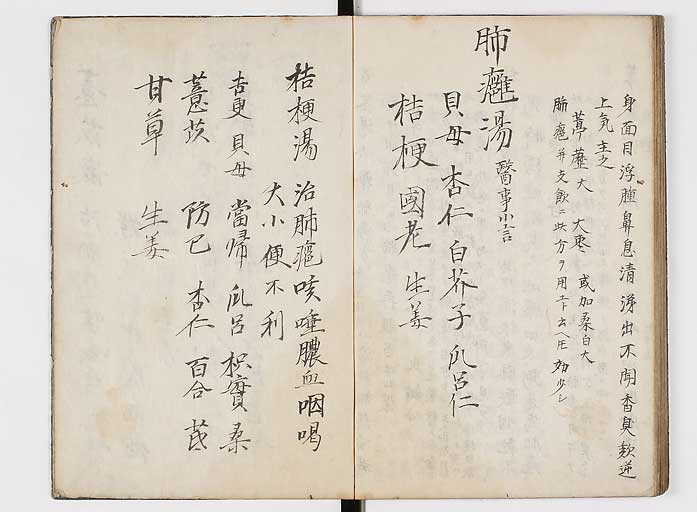 身面目浮腫鼻息清涕出不聞香臭欬逆
上気主之
葶藶大 大棗 或加桑白大
肺癰并支飲ニ此方ヲ用ユト云ヘ㔟効少シ
肺癰湯 醫事小言
貝母 杏仁 白芥子 瓜呂仁
桔梗 國老 生姜
桔梗湯 治肺癰咳唾膿血咽喝
大小便不利
吉更 貝母 當帰 瓜呂 枳實 桑
薏苡 防已 杏仁 百合 芪
甘草 生姜